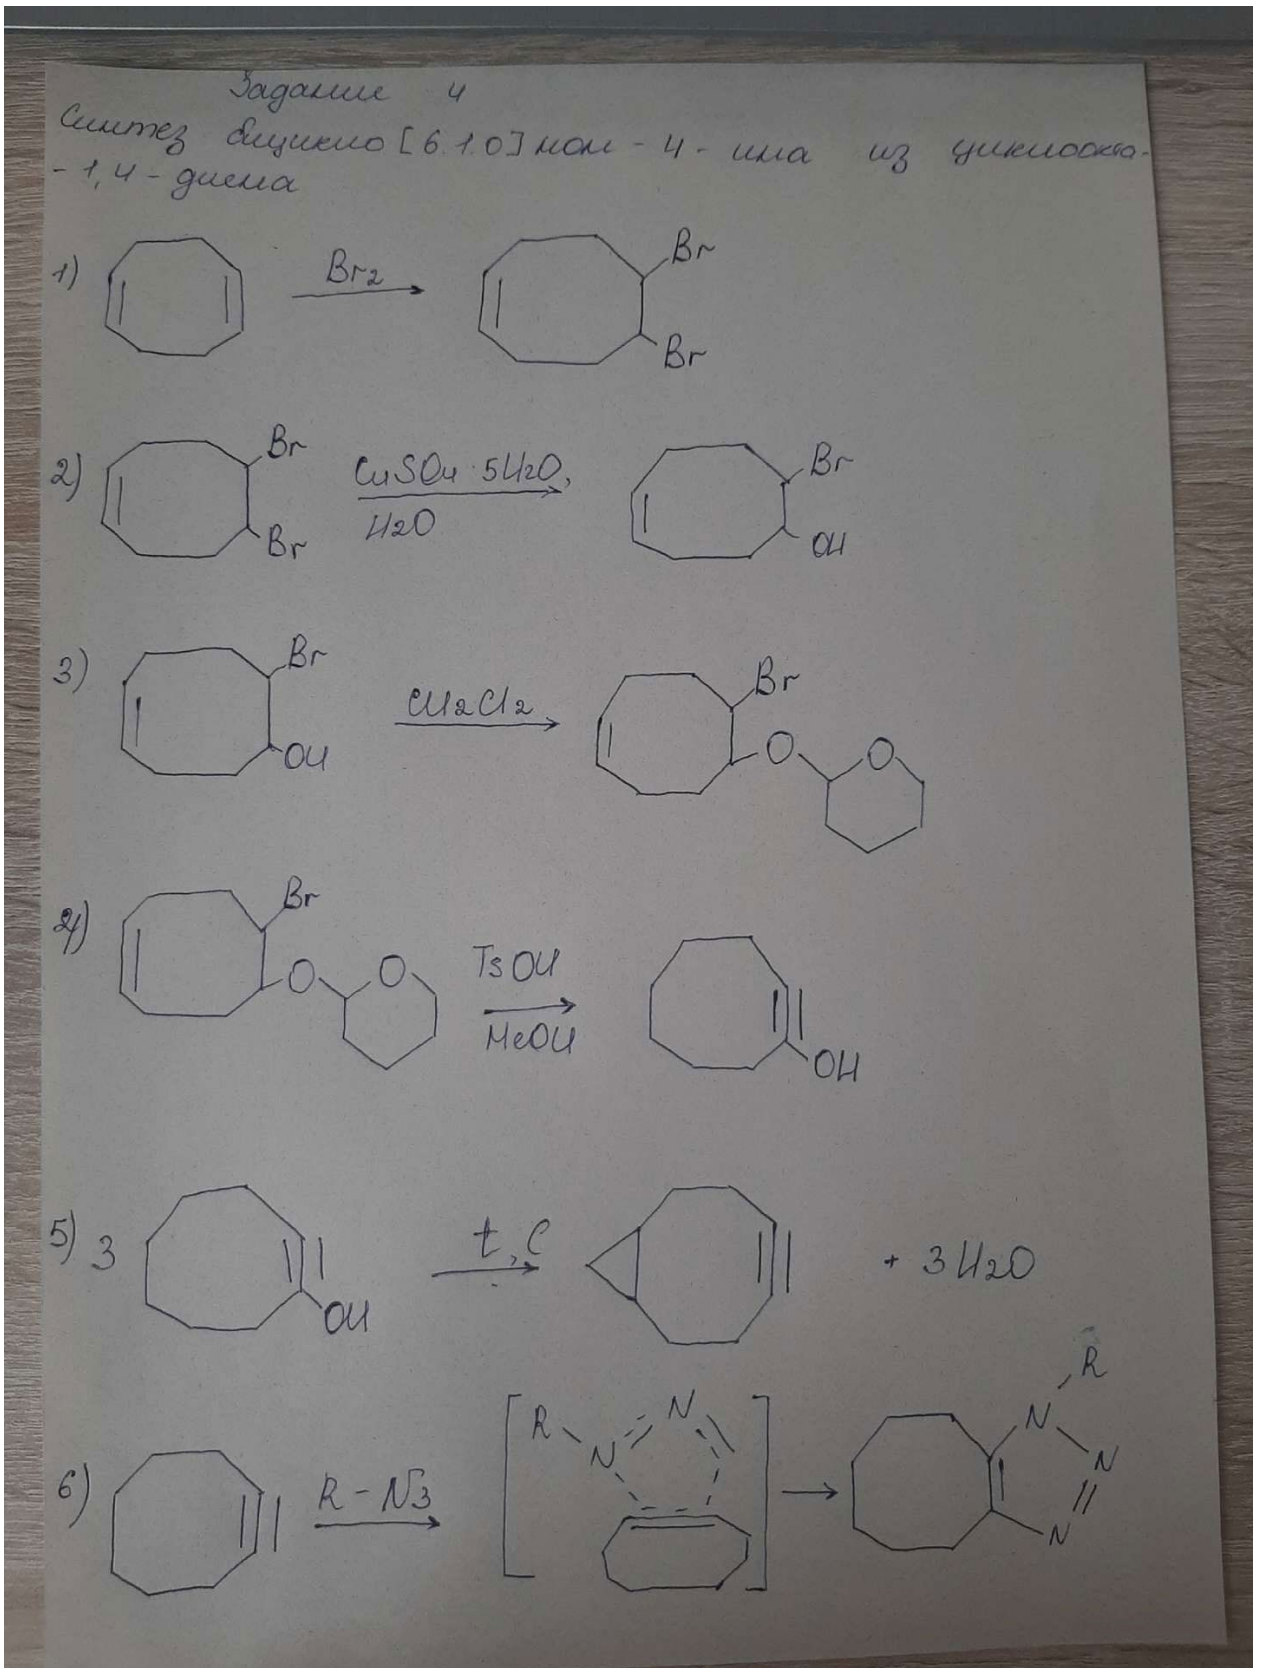 Задание 4
Синтез бицикло [6.1.0] нон - 4 - ина из циклоокта-
- 1,4 - диена
1) Br2 Br Br
2) Br Br CuSO4 · 5H2O, H2O Br OH
3) Br OH CH2Cl2 Br O O
4) Br O O TsOH MeOH OH
5) 3 OH t, C + 3H2O
6) R - N3 R N N R N N N